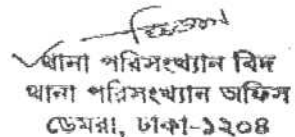 থানা পরিসংখ্যান বিদ
থানা পরিসংখ্যান অফিস
ডেমরা, ঢাকা-১২০৪